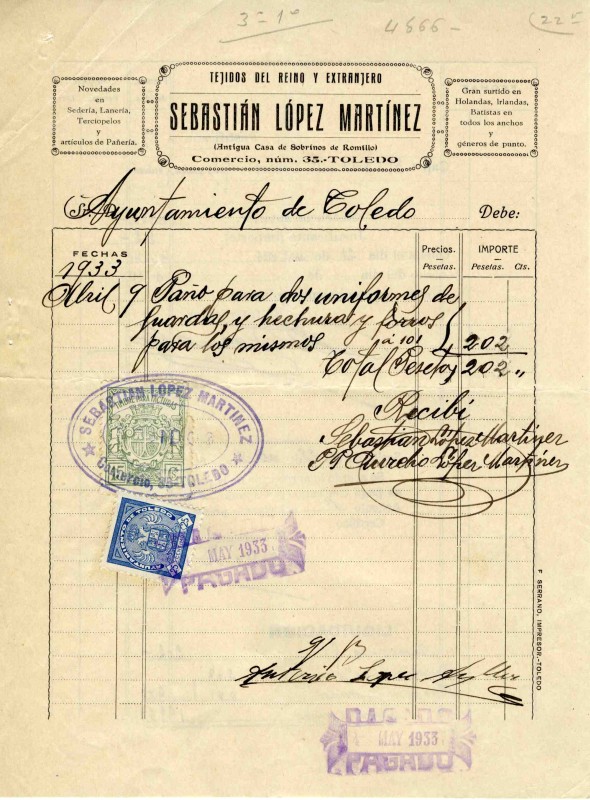 3=1º
4866-
TEJIDOS DEL REINO Y EXTRANJERO
SEBASTIÁN LÓPEZ MARTÍNEZ
(Antigua Casa de Sobrinos de Romillo)
Comercio, núm. 35.-TOLEDO
Novedades
en
Sedería, Lanería,
Terciopelos
y
artículos de Pañería.
Gran surtido en
Holandas, Irlandas,
Batistas en
todos los anchos
y
géneros de punto.
Ayuntamiento de Toledo Debe:
FECHAS Precios. IMPORTE
Pesetas. Pesetas. Cts.
1933
Abril 9 Paño para dos uniformes de
guardas, y hechura y forros
para los mismos a 101 202
Total Pesetas 202 "
Recibí
Sebastián López Martínez
P P Aurelio López Martínez
SEBASTIAN LOPEZ MARTINEZ
Comercio, 35-TOLEDO
AYUNTAMIENTO DE TOLEDO
MAY 1933
PAGADO
Antonio Lopez
MAY 1933
PAGADO
F. SERRANO, IMPRESOR.-TOLEDO